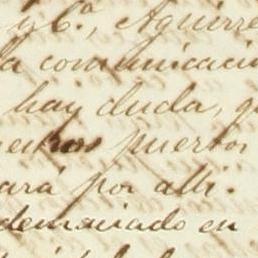 y C.ª, Aguirre
la comunicació
hay duda, q
puertos
ará por alli.
demasiado en